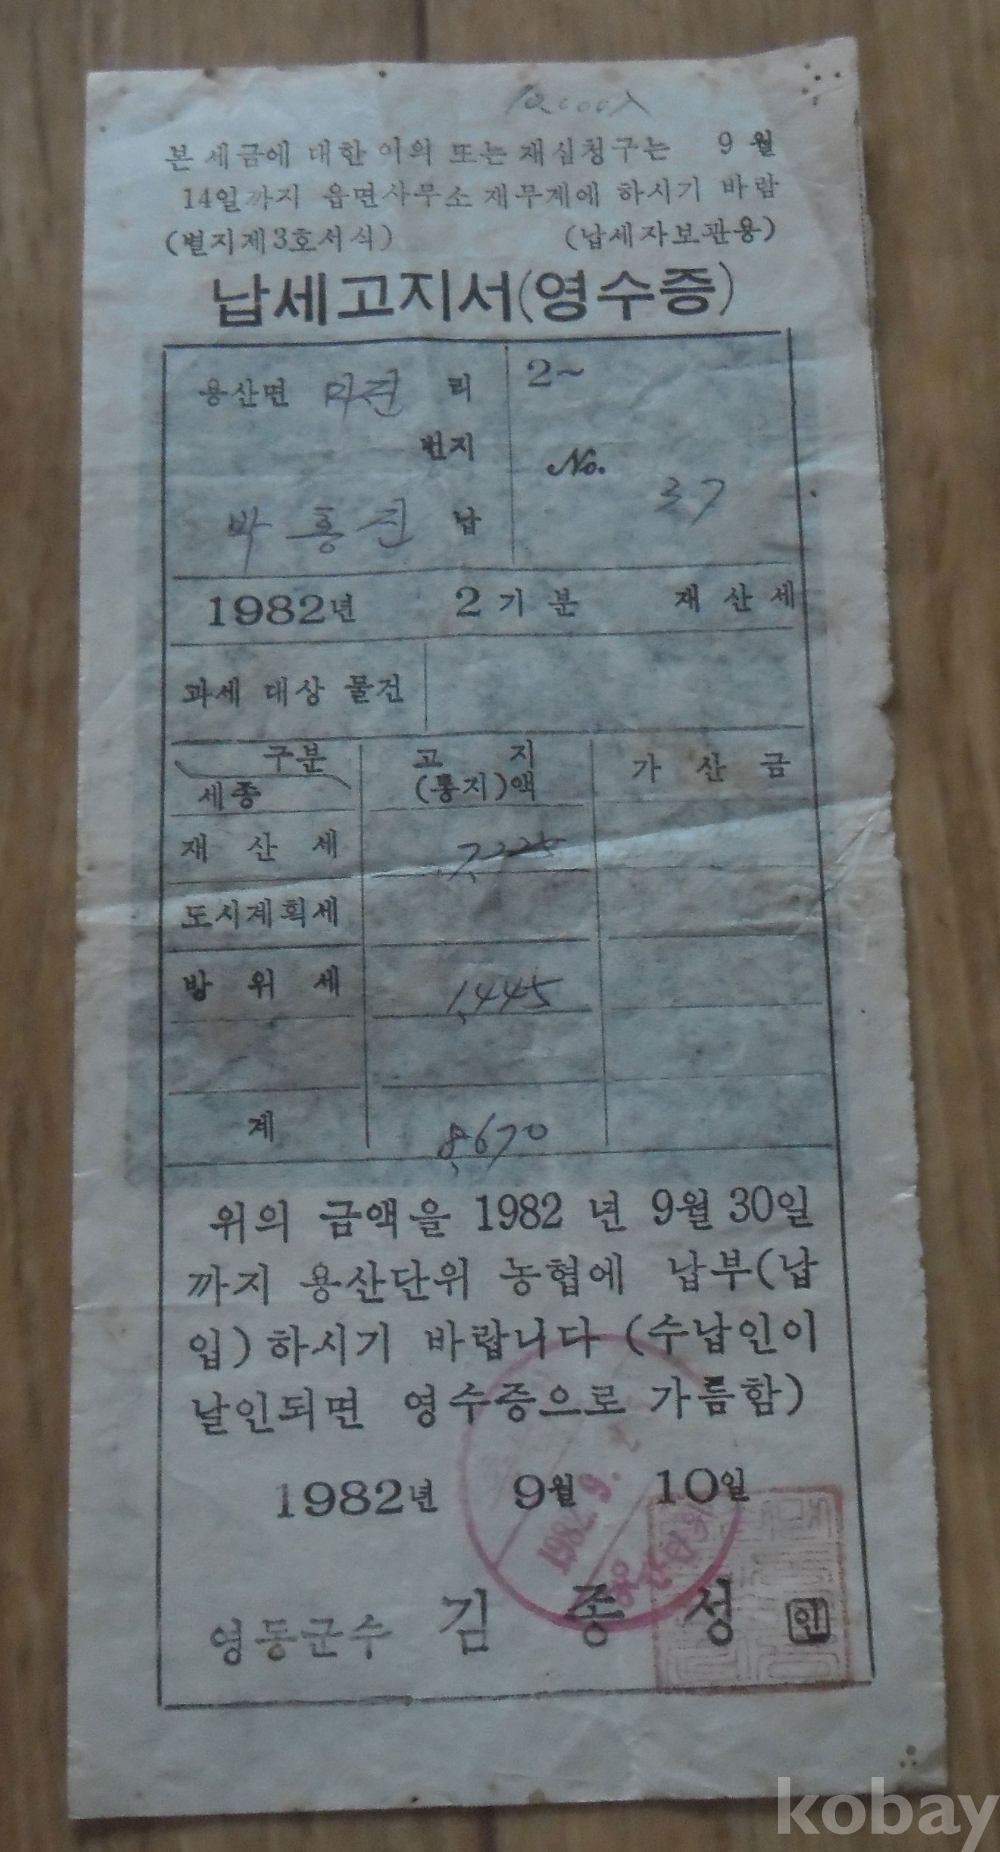 10,000入
본 세금에 대한 이의 또는 재심청구는 9월
14일까지 읍면사무소 재무계에 하시기 바람
(별지제3호서식) (납세자보관용)
납세고지서(영수증)
용산면 미전 리
2~
번지
No. 37
박홍진 납
1982년 2기분 재산세
과세 대상 물건
구분
세종
고지
(통지)액
가산금
재산세 7,225
도시계획세
방위세 1,445
계 8,670
위의 금액을 1982년 9월 30일
까지 용산단위 농협에 납부(납
입)하시기 바랍니다 (수납인이
날인되면 영수증으로 가름함)
1982년 9월 10일
1982. 9.
용산단위
영동군수 김종성 인
kobay